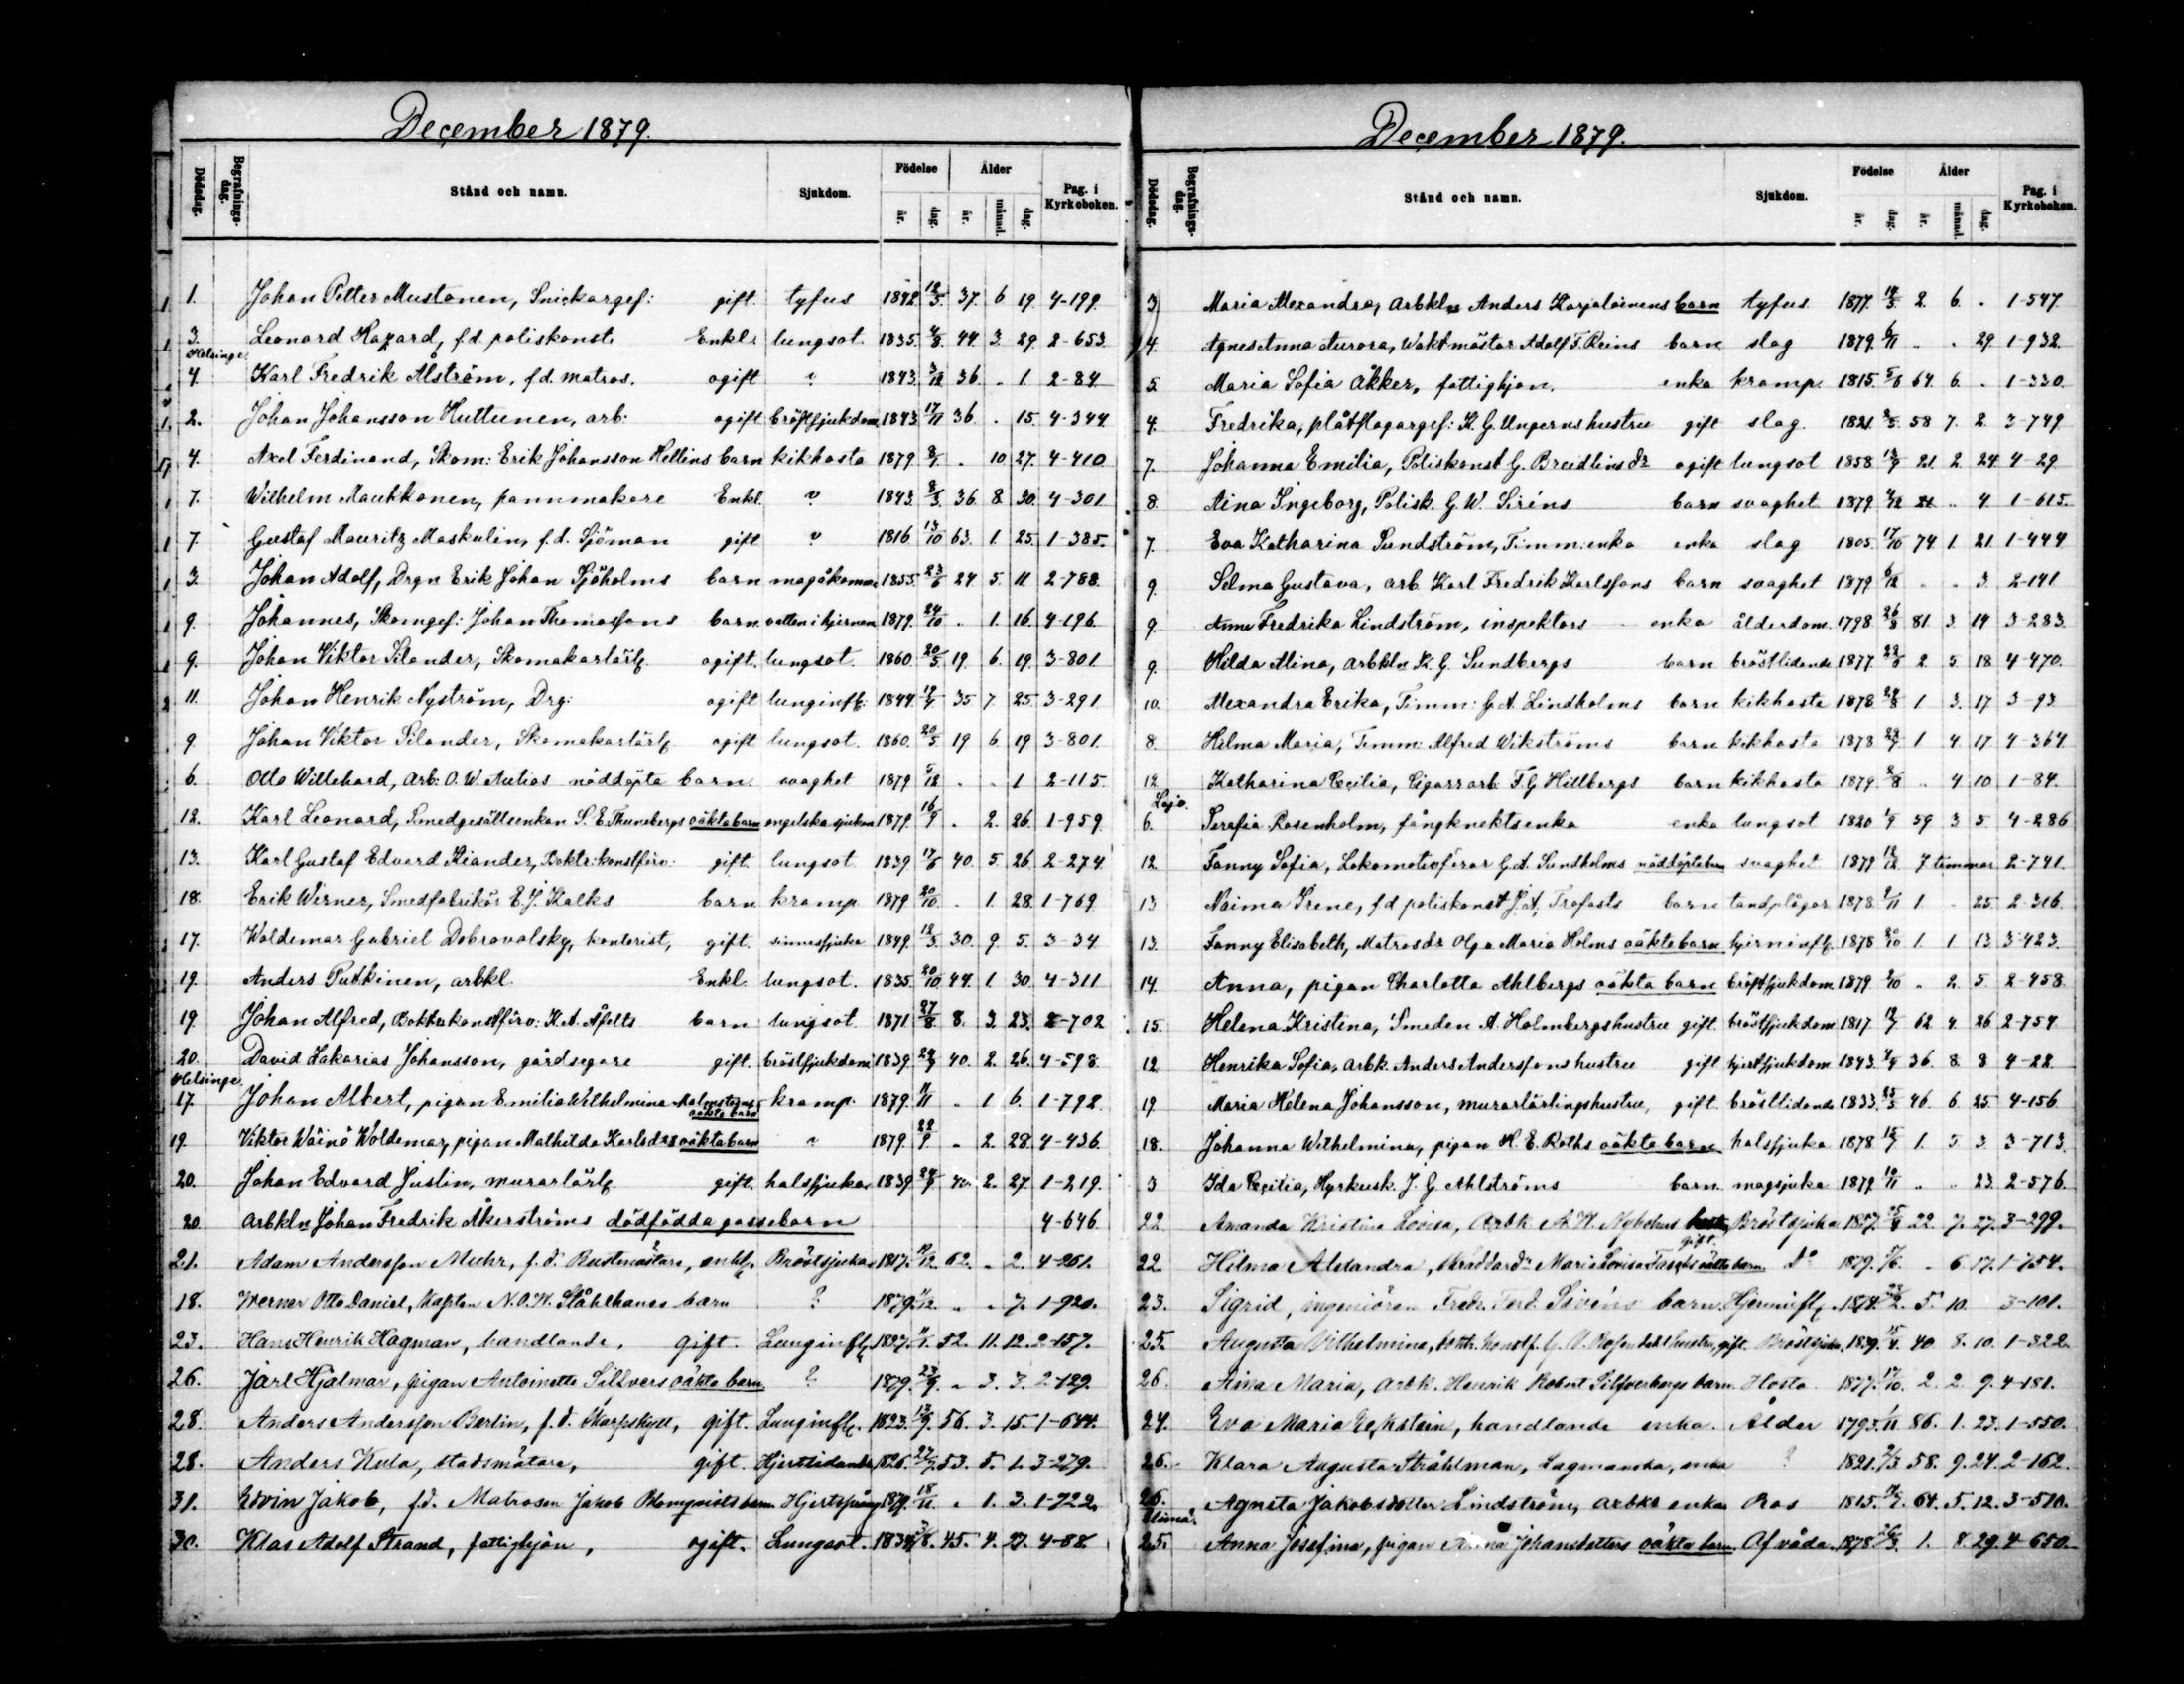 December 1879.
Dödsdag. Begrafnings-dag. Stånd och namn. Sjukdom. Födelse år. dag. Ålder år. månad. dag. Pag. i Kyrkoboken.
1. Johan Petter Mustonen, Snickargef: gift. tyfus 1842 12/5 37. 6 19. 4-199.
3. Leonard Hazard, f.d. poliskonst. Enkl. lungsot. 1835. 4/8. 44. 3. 29. 2-653.
Helsinge.
4. Karl Fredrik Alström, f.d. matros. ogift ? 1843. 3/12 36. . 1 2-84
2. Johan Johansson Huttunen, arb: ogift bröstsjukdom 1843 17/11 36 . 15. 4-344.
4. Axel Ferdinand, Skom: Erik Johansson Hellins barn kikhosta 1879 8/1 . 10 27. 4-410
7. Wilhelm Maukkonen, pannmakare Enkl. ? 1843. 8/3. 36 8. 30. 4-301
7. Gustaf Mauritz Maskulin, f.d. Sjöman gift ? 1816 13/10 63. 1. 25. 1-385.
3. Johan Adolf, Drgn Erik Johan Sjöholms barn magåkomma 1855. 23/6 24. 5. 11 2-788.
9. Johannes, Skomgef: Johan Thomassons barn vatten i hjernan 1879. 24/10 .. 1. 16. 4-196.
9. Johan Viktor Silander, Skomakarlärl. ogift. lungsot. 1860 20/5 19. 6. 19. 3-801
11. Johan Henrik Nyström, Drg: ogift lunginfl: 1844. 17/4 35 7. 25. 3-291
9. Johan Viktor Silander, Skomakarlärl. ogift lungsot. 1860. 20/5 19 6. 19 3-801.
6. Otto Willehard, Arb: O. W. Aulios nöddöpta barn. svaghet 1879 5/12 . . 1 2-115.
12. Karl Leonard, Smedgesällsenkan S. E. Thunebergs oäkta barn engelska sjukan 1879. 16/9 . 2. 26. 1-959
13. Karl Gustaf Edvard Kiander, Boktr: konstförv: gift. lungsot 1839 17/6 40. 5. 26. 2-274
18. Erik Werner, Smedfabrikör E. J. Kalks barn kramp 1879 20/10 . 1. 28. 1-769
17. Woldemar Gabriel Dobrovolsky, kontorist, gift. sinnessjuka 1849. 12/3. 30. 9. 5. 3-34
19. Anders Putkinen, arbkl. Enkl. lungsot. 1835. 20/10 44. 1. 30. 4-311
19. Johan Alfred, Boktr: konstförv: K. A. Åfelts barn lungsot. 1871 27/8 8. 3. 23. 2-702
20. David Zakarias Johansson, gårdsegare gift. bröstsjukdom 1839. 24/9 40. 2. 26. 4-598
Helsinge.
17. Johan Albert, pigan Emilia Wilhelmina Malmstens oäkta barn kramp. 1879. 11/11 . 1 6. 1-792
19. Viktor Wäinö Woldemar, pigan Mathilda Karlsdrs oäkta barn ? 1879. 22/9 . 2. 28. 4-436
20. Johan Edvard Juslin, murarlärl. gift. halssjuka 1839 24/9 40. 2. 27. 1-219.
20. Arbkln Johan Fredrik Åkerströms dödfödda gossebarn 4-646.
21. Adam Andersson Muhr, f.d. Rustmästare, enkl. Bröstsjuka 1817. 19/12 62. . 2. 4-261.
18. Werner Otto Daniel, Kapten N. O. W. Stålhanes barn ? 1879. 11/12. . . 7. 1-920.
23. Hans Henrik Hagman, handlande, gift. Lunginfl. 1827. 11/1. 52. 11. 12. 2-157.
26. Jarl Hjalmar, pigan Antoinette Sillvers oäkta barn ? 1879. 23/9. . 3. 3. 2-129.
28. Anders Andersson Berlin, f.d. Skarpskytt, gift. Lunginfl. 1823. 13/9. 56. 3. 15. 1-644.
28. Anders Kula, stadsmätare, gift. Hjertlidande 1826. 27/7. 53. 5. 1. 3-279.
31. Edvin Jakob, f.d. Matrosen Jakob Blomqvists barn Hjertsprång 1879. 18/11. . 1. 3. 1-722.
30. Klas Adolf Strand, fattighjon, ogift. Lungsot. 1834. 3/8. 45. 4. 27. 4-88.
December 1879.
Dödsdag. Begrafnings-dag. Stånd och namn. Sjukdom. Födelse år. dag. Ålder år. månad. dag. Pag. i Kyrkoboken.
3. Maria Alexandra, Arbkln Anders Karjalainens barn tyfus 1877. 2. 6. . 1-547.
4. Agnes Anna Aurora, Waktmästar Adolf F. Reins barn slag 1879. 6/11 . . 29 1-932.
5. Maria Sofia Åkker, fattighjon. enka kramp. 1815. 5/6 64. 6. . 1-330.
4. Fredrika, plåtslagargef: K. G. Ungerns hustru gift slag. 1821. 2/5 58 7. 2. 3-749
7. Johanna Emilia, Poliskonst G. Breidlins dr ogift lungsot 1858 13/9 21. 2. 24 4-29
8. Aina Ingeborg, Polisk. G. W. Siréns barn svaghet 1879 4/12 .. 4. 1-615.
7. Eva Katharina Sundström, Timm: enka enka slag 1805. 17/10 74 1. 21. 1-444
9. Selma Gustava, arb Karl Fredrik Karlssons barn svaghet 1879 6/12 . . 3. 2-141
9. Anna Fredrika Lindström, inspektors enka ålderdom. 1798 26/8 81. 3. 14 3-283.
9. Hilda Alina, Arbkln K. G. Sundbergs barn bröstlidande 1877. 22/6 2 5 18 4-470.
10. Alexandra Erika, Timm: G. A. Lindholms barn kikhosta 1878. 24/8 1 3. 17 3-93
8. Hilma Maria, Timm: Alfred Wikströms barn kikhosta 1878 1 4. 17 4-364
12. Katharina Cecilia, Cigarrarb. F. G. Hillbergs barn kikhosta 1879. 2/8 .. 4 10 1-84.
Lojo.
6. Serafia Rosenholm, fångknektsenka enka lungsot 1820 1/9 59 3 5. 4-286
12 Fanny Sofia, Lokomotivförar G. A. Sundholms nöddöpta barn svaghet 1879 12/12 7 timmar 2-741.
13 Naima Irene, f.d poliskonst J. A. Trofasts barn tandplågor 1878. 1. . 25. 2-316.
13. Fanny Elisabeth, Matrosdr Olga Maria Holms oäkta barn hjerninfl. 1878 30/10 1. 1 13. 3-423.
14. Anna, pigan Charlotta Ahlbergs oäkta barn bröstsjukdom 1879. 9/10 . 2. 5. 2-458.
15. Helena Kristina, Smeden A. Holmbergs hustru gift bröstsjukdom 1817. 62 4. 26 2-754.
12 Henrika Sofia, Arbk. Anders Anderssons hustru gift hjertsjukdom 1843. 4/4 36. 8. 8 4-22.
19 Maria Helena Johansson, murarlärlingshustru, gift. bröstlidande 1833. 46. 6 25. 4-156
18. Johanna Wilhelmina, pigan H. E. Roths oäkta barn halssjuka 1878 15/7 1. 5 3 3-713.
3 Ida Cecilia, Hyrkusk. J. G. Ahlströms barn. magsjuka 1879 10/11 .. .. 23. 2-576.
22. Amanda Kristina Lovisa, Arbk. A. W. Nyholms hustru gift. Bröstsjuka 1857. 25/4 22. 7. 27. 3-299.
22. Hilma Alexandra, skräddardr Maria Lovisa oäkta barn do 1879. 5/6. . 6. 17. 1-754.
23. Sigrid, ingeniören Fredr. Ferd. Sivéns barn. Hjerninfl. 1874. 23/2. 5. 10. 3-101.
25. Augusta Vilhelmina, boktr. konstf. G. A. Rosendahl hustru, gift. Bröstsjuka, 1839. 15/4. 40 8. 10. 1-322.
26. Aina Maria, Arbk. Henrik Robert Silfverbergs barn. Hosta. 1877. 17/10. 2. 2. 9. 4-181.
24. Eva Maria Eckstein, handlande enka. Ålder 1793. 1/11 86. 1. 23. 1-550.
26. Klara Augusta Stråhlman, Lagmanska, enka ? 1821. 2/3 58. 9. 24. 2-162.
26. Agneta Jakobsdotter Lindström, arbks enka Ros 1815. 14/7. 64. 5. 12. 3-510.
Elimä.
25. Anna Josefina, pigan Anna Johansdotters oäkta barn. Af våda. 1878 26/3. 1. 8. 29. 4-650.